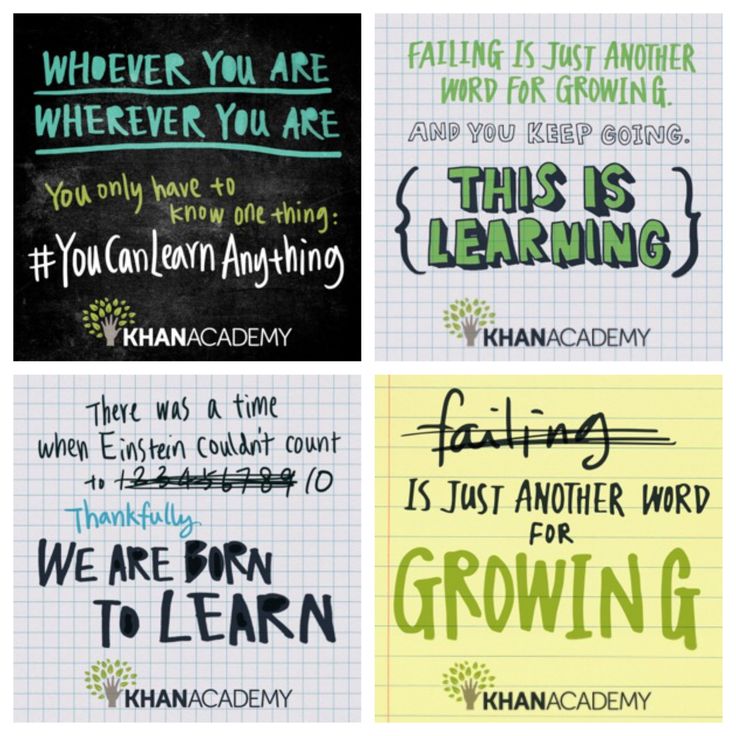 WHOEVER YOU ARE
WHEREVER YOU ARE
You only have to
know one thing:
#YouCanLearnAnything
KHANACADEMY
FAILING IS JUST ANOTHER
WORD FOR GROWING.
AND YOU KEEP GOING.
{THIS IS
LEARNING}
KHANACADEMY
There was a time
when Einstein couldn't count
to 123456789 10
Thankfully
WE ARE BORN
TO LEARN
KHANACADEMY
failing
IS JUST ANOTHER WORD
FOR
GROWING
KHANACADEMY